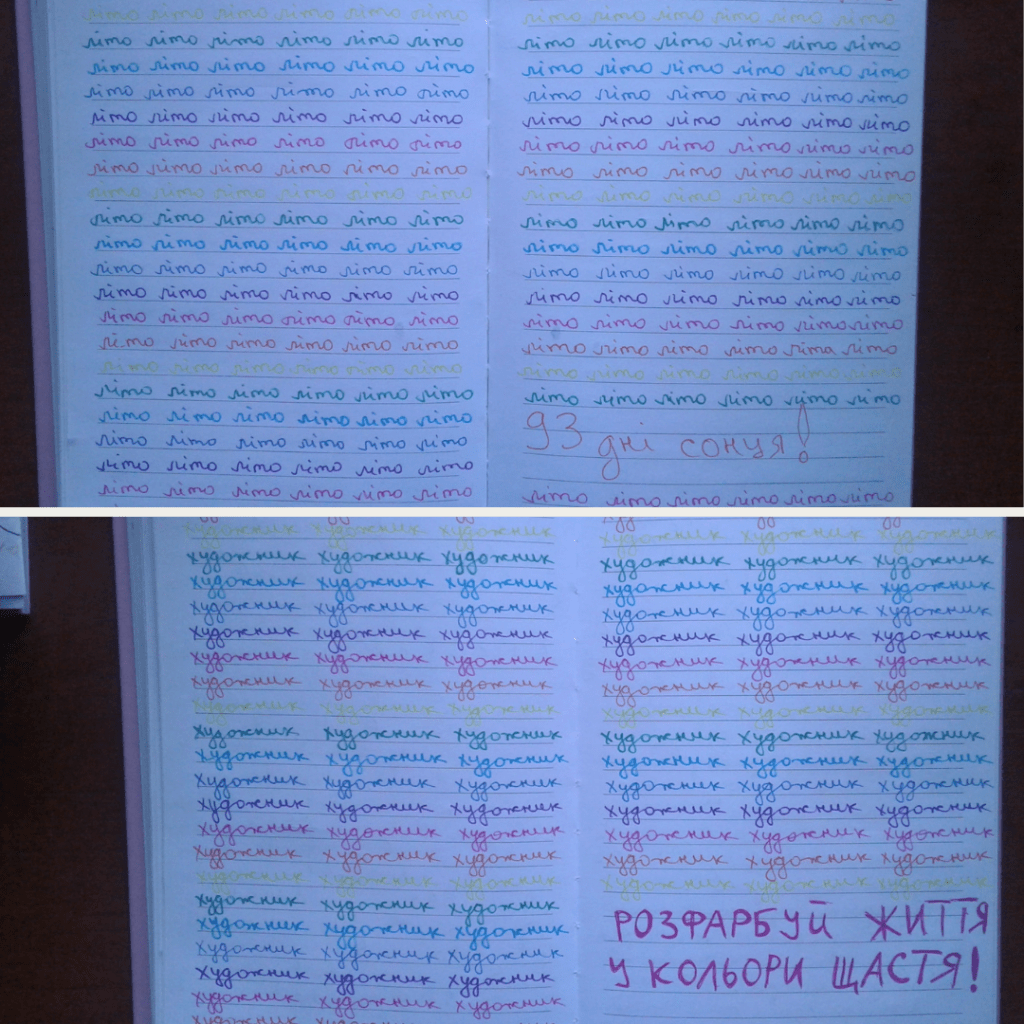 літо літо літо літо літо літо
літо літо літо літо літо літо
літо літо літо літо літо літо
літо літо літо літо літо літо
літо літо літо літо літо літо
літо літо літо літо літо літо
літо літо літо літо літо літо
літо літо літо літо літо літо
літо літо літо літо літо літо
літо літо літо літо літо літо
літо літо літо літо літо літо
літо літо літо літо літо літо
літо літо літо літо літо літо
літо літо літо літо літо літо
літо літо літо літо літо літо
літо літо літо літо літо літо
літо літо літо літо літо літо
літо літо літо літо літо літо
літо літо літо літо літо літо
літо літо літо літо літо літо
літо літо літо літо літо літо
літо літо літо літо літо літо
літо літо літо літо літо літо
літо літо літо літо літо літо
літо літо літо літо літо літо
літо літо літо літо літо літо
літо літо літо літо літо літо
літо літо літо літо літо літо
літо літо літо літо літо літо
літо літо літо літо літо літо
літо літо літо літо літо літо
літо літо літо літо літо літо
літо літо літо літо літо літо
літо літо літо літо літа літо
літо літо літо літо літо літо
літо літо літо літо літо літо
93 дні сонця!
літо літо літо літо літо літо
художник художник художник
художник художник художник
художник художник художник
художник художник художник
художник художник художник
художник художник художник
художник художник художник
художник художник художник
художник художник художник
художник художник художник
художник художник художник
художник художник художник
художник художник художник
художник художник художник
художник художник художник
художник художник художник
художник художник художник
художник художник художник
художник художник художник
художник художник художник
художник художник художник
художник художник художник
художник художник художник
художник художник художник
художник художник художник
художник художник художник
художник художник художник
художник художник художник
художник художник художник
художник художник художник
художник художник художник
художник художник художник
художник художник художник
художник художник художник
художник художник художник
РОЗФАРБУЙ ЖИТТЯ
У КОЛЬОРИ ЩАСТЯ!